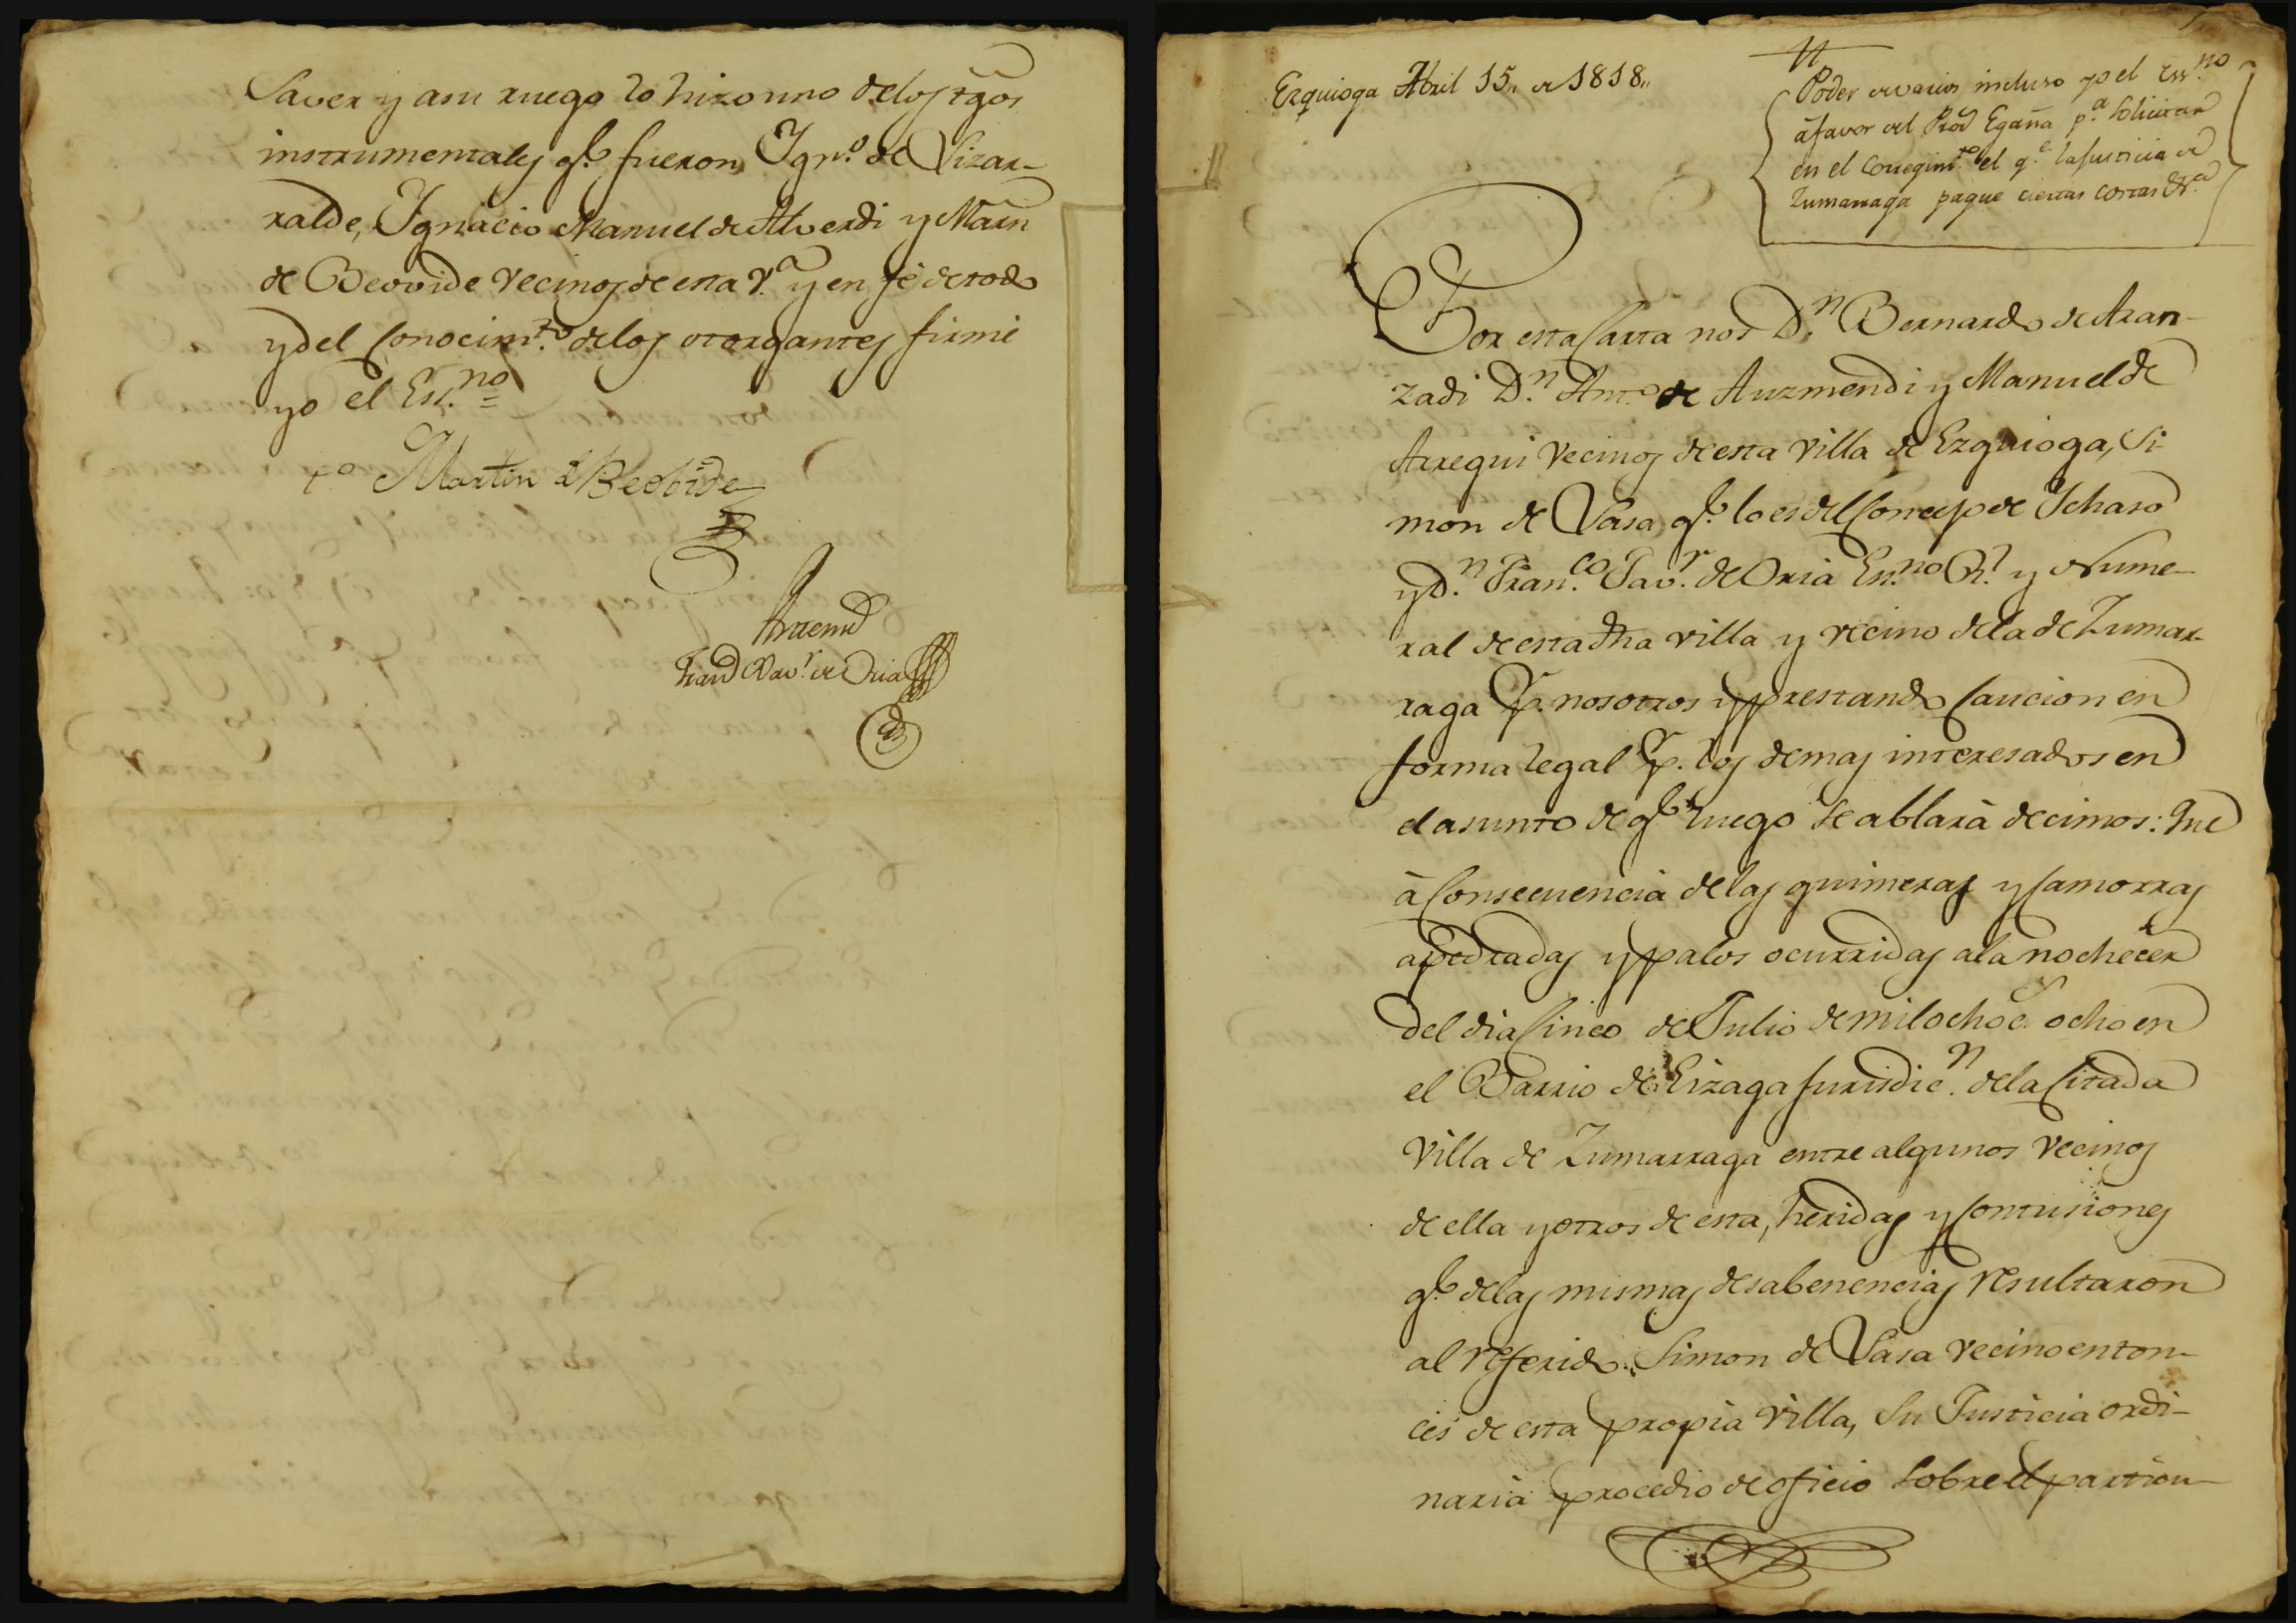 Saver y asu ruego lo hizo uno delos tg̃os
instrumentales qe. fueron Ignº. de Lizar-
ralde, Ignacio Manuel de Alverdi y Mãrn
de Beovide vecinos de esta Vª. y en fé de todo
y del Conocimto. delos otorgantes firmé
yo el Essno. =
tº Martin d Beobide
Antemi
Franco Xavr. de Oria
Ezquioga Abril 15,, de 1818,,
Poder de varios incluso yo el Essno.
à favor del Proõr Egaña pª. solicitar
en el Corregimto. el qe. la Justicia de
Zumarraga pague ciertas costas &ª.
Por esta Carta nos Dn. Bernardo de Aran-
zadi Dn. Antº. de Auzmendi y Manuel de
Arregui vecinos de esta Villa de Ezquioga, Si-
mon de Vasa qe. lo es del Concejo de Ichaso
y Dn. Franco. Javr. de Oria Essno. Rl. y Nume-
ral de esta dha villa y vecino dela de Zumar-
raga Pr. nosotros y prestando Caucion en
forma legal Pr. los demas interesados en
el asunto de qe. luego se ablarà decimos: Que
à Consecuencia delas quimeras y Camorras
apedreadas y palos ocurridas ala nochecer
del dia Cinco de Julio de mil ochocs. ocho en
el Barrio de Eizaga Jurisdicn. dela Citada
Villa de Zumarraga entre algunos vecinos
de ella y otros de esta, heridas y Contusiones
qe. delas mismas desabenencias resultaron
al referido Simon de Vasa vecino enton-
ces de esta propia villa, su Justicia ordi-
naria procedio de oficio sobre el particu-